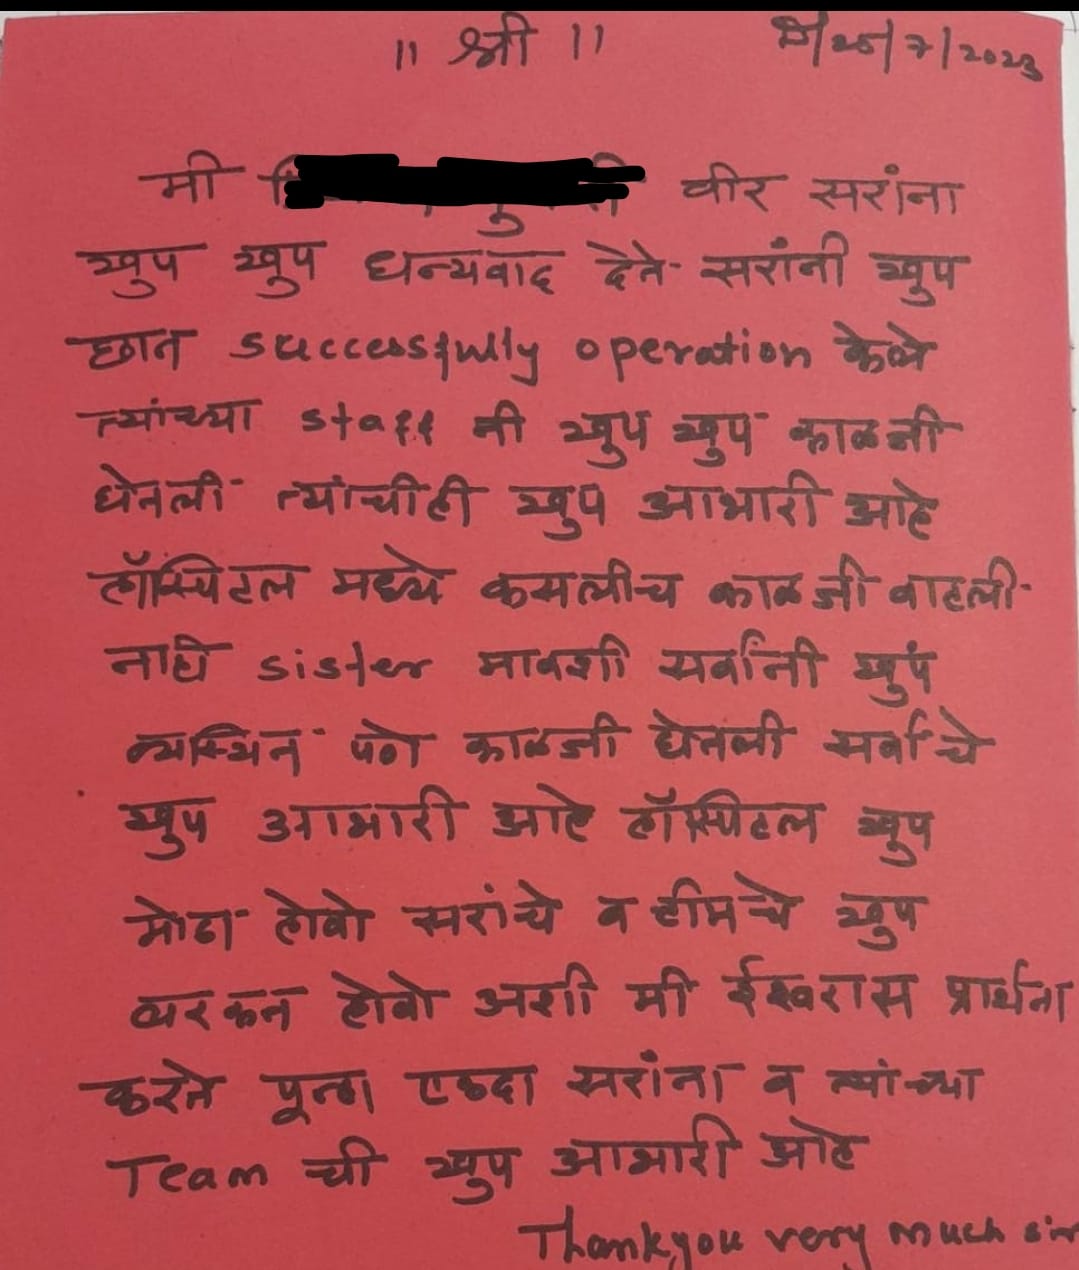 ॥ श्री ॥ दि/25/7/2023
मी वीर सरांना
खुप खुप धन्यवाद देते सरांनी खुप
छान successfully operation केले
त्यांच्या staff नी खुप खुप काळजी
घेतली त्यांचीही खुप आभारी आहे
हॉस्पिटल मध्ये कसलीच काळजी वाटली
नाही sister मावशी सर्वांनी खुप
व्यस्थित पणे काळजी घेतली सर्वांचे
खुप आभारी आहे हॉस्पिटल खुप
मोठा होवो सरांचे व टीमचे खुप
बरकत होवो अशी मी ईश्वरास प्रार्थना
करते पून्हा एकदा सरांना व त्यांच्या
Team ची खुप आभारी आहे
Thankyou very much sir